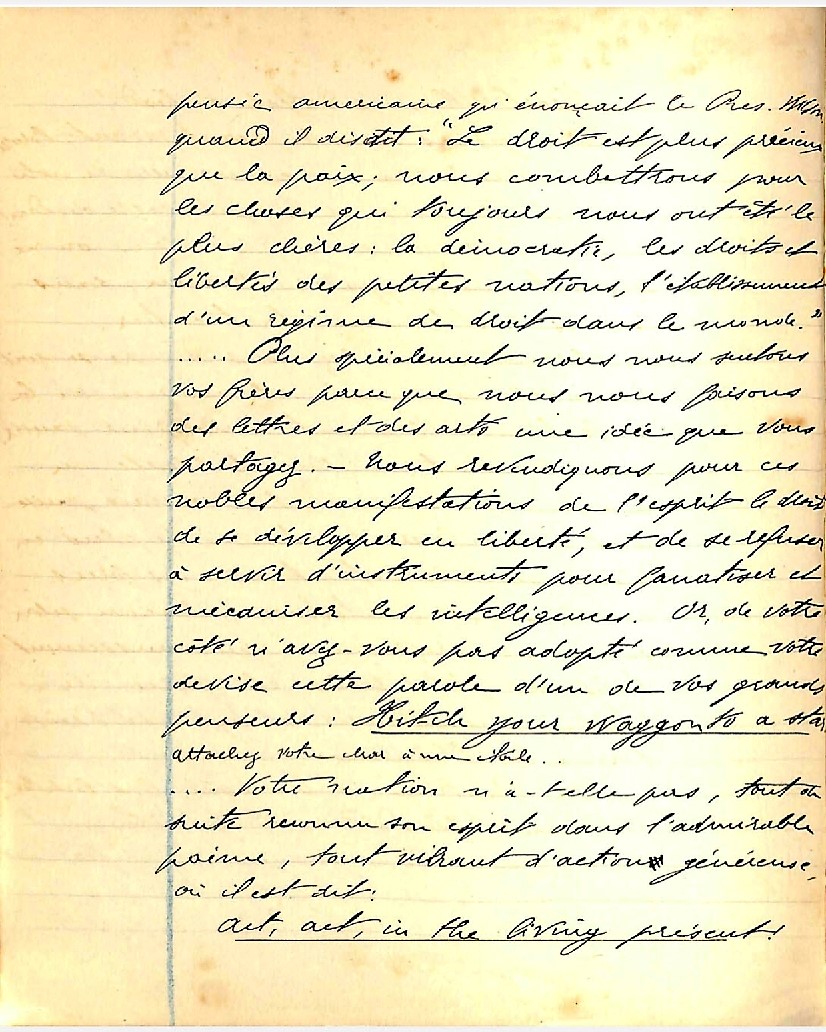 pensée americaine qu'énonçait le Pres. Wilson
quand il disait : "Le droit est plus précieux
que la paix ; nous combattrons pour
les choses qui toujours nous ont été le
plus chères : la démocratie, les droits et
libertés des petites nations, l'établissement
d'un régime de droit dans le monde."
..... Plus spécialement nous nous sentons
vos frères parce que nous nous faisons
des lettres et des arts une idée que vous
partagez. – Nous revendiquons pour ces
nobles manifestations de l'esprit le droit
de se développer en liberté, et de se refuser
à servir d'instruments pour fanatiser et
mécaniser les intelligences. Or, de votre
côté n'avez-vous pas adopté comme votre
devise cette parole d'un de vos grands
penseurs : Hitch your waggon to a star
attachez votre char à une étoile..
.... Votre nation n'a-t-elle pas, tout de
suite reconnu son esprit dans l'admirable
poème, tout vibrant d'action généreuse,
où il est dit :
Act, act, in the living présent !